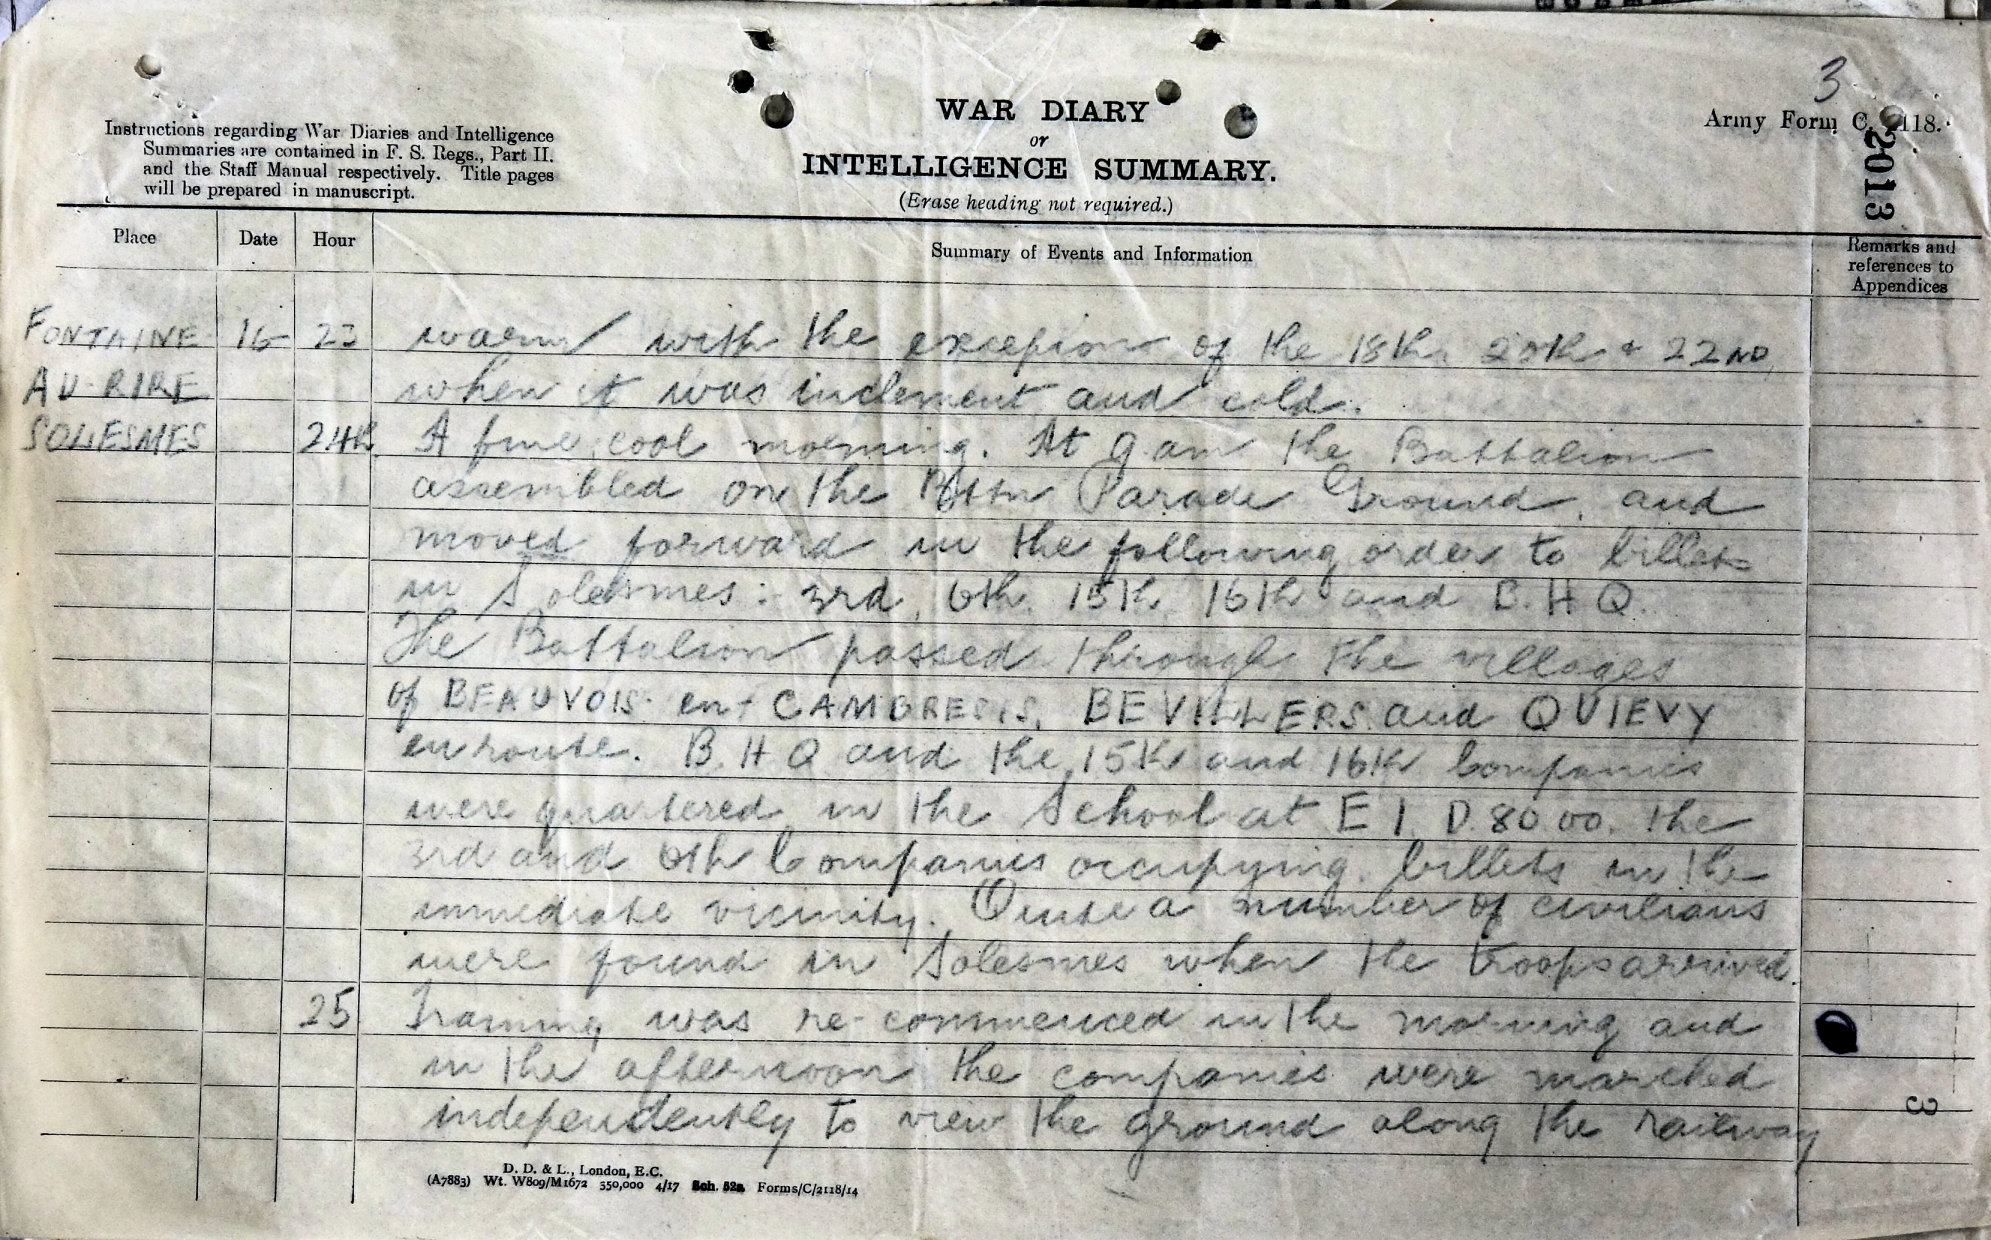 3
Army Form C. 2118.
2013
WAR DIARY
or
INTELLIGENCE SUMMARY.
(Erase heading not required.)
Instructions regarding War Diaries and Intelligence
Summaries are contained in F. S. Regs., Part II.
and the Staff Manual respectively. Title pages
will be prepared in manuscript.
Place Date Hour Summary of Events and Information Remarks and
references to
Appendices
FONTAINE 16 23 warm with the exception of the 18th, 20th & 22ND,
AU-RIRE when it was inclement and cold.
SOLESMES 24th. A fine cool morning. At 9 am the Battalion
assembled on the Battn Parade Ground, and
moved forward in the following order to billets
in Solesmes :- 3rd, 6th, 15th, 16th and B.H.Q.
The Battalion passed through the villages
of BEAUVOIS- en- CAMBRESIS, BEVILLERS and QUIEVY
enroute. B.H.Q and the 15th and 16th Companies
were quartered in the School at E 1. D. 80 00. the
3rd and 6th Companies occupying billets in the
immediate vicinity. Quite a number of civilians
were found in Solesmes when the troops arrived.
25 Training was re-commenced in the morning and
in the afternoon the companies were marched
independently to view the ground along the railway
3
D. D. & L., London, E.C.
(A7883) Wt. W809/M1672 350,000 4/17 Sch. 52a Forms/C/2118/14